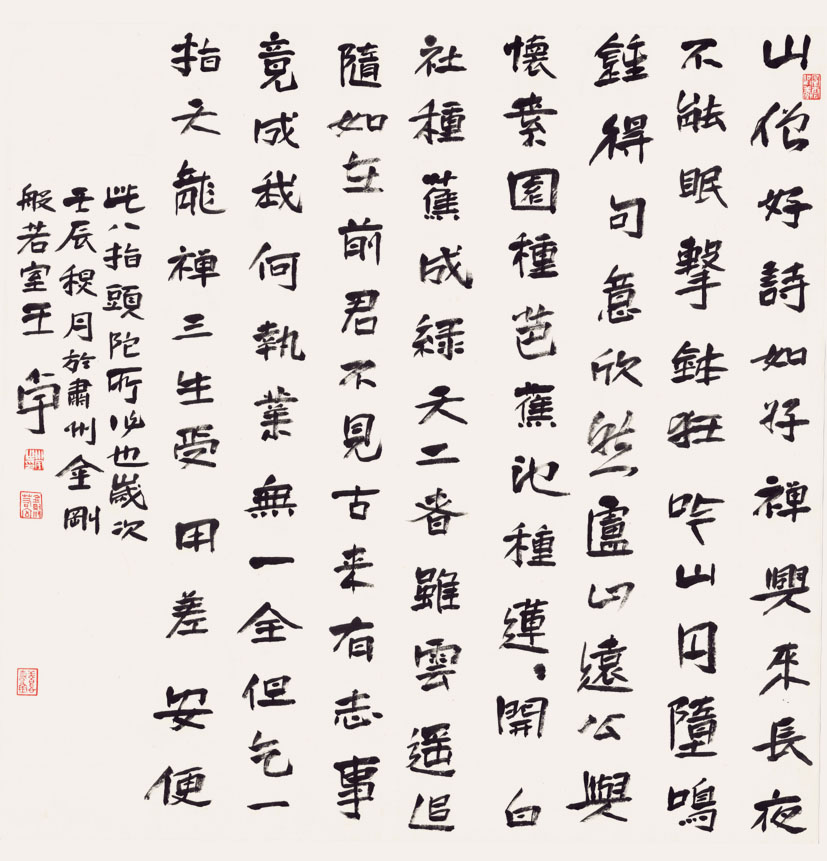 山僧好詩如好禅興來長夜
不能眠擊鉢狂吟山月墮鳴
鍾得句意欣然廬山遠公與
懷素園種芭蕉池種蓮、開白
社種蕉成緑天二者雖雲遥追
隨如在前君不見古来有志事
竟成我何執業無一全但乞一
指天龍禅三生受用差安便
此八指頭陀所说也歲次
壬辰稷月於肅州金剛
般若室王宇